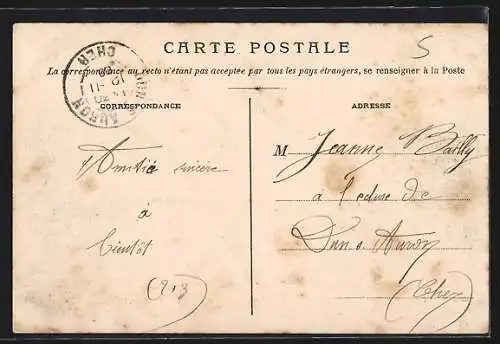 CARTE POSTALE
5
La correspondance au recto n'étant pas acceptée par tous les pays étrangers, se renseigner à la Poste
CORRESPONDANCE
ADRESSE
AURON
CHER
Amitié sincère
à
bientôt
(213)
M Jeanne Bailly
a l'ecluse de
Dun s. Auron
(Cher)